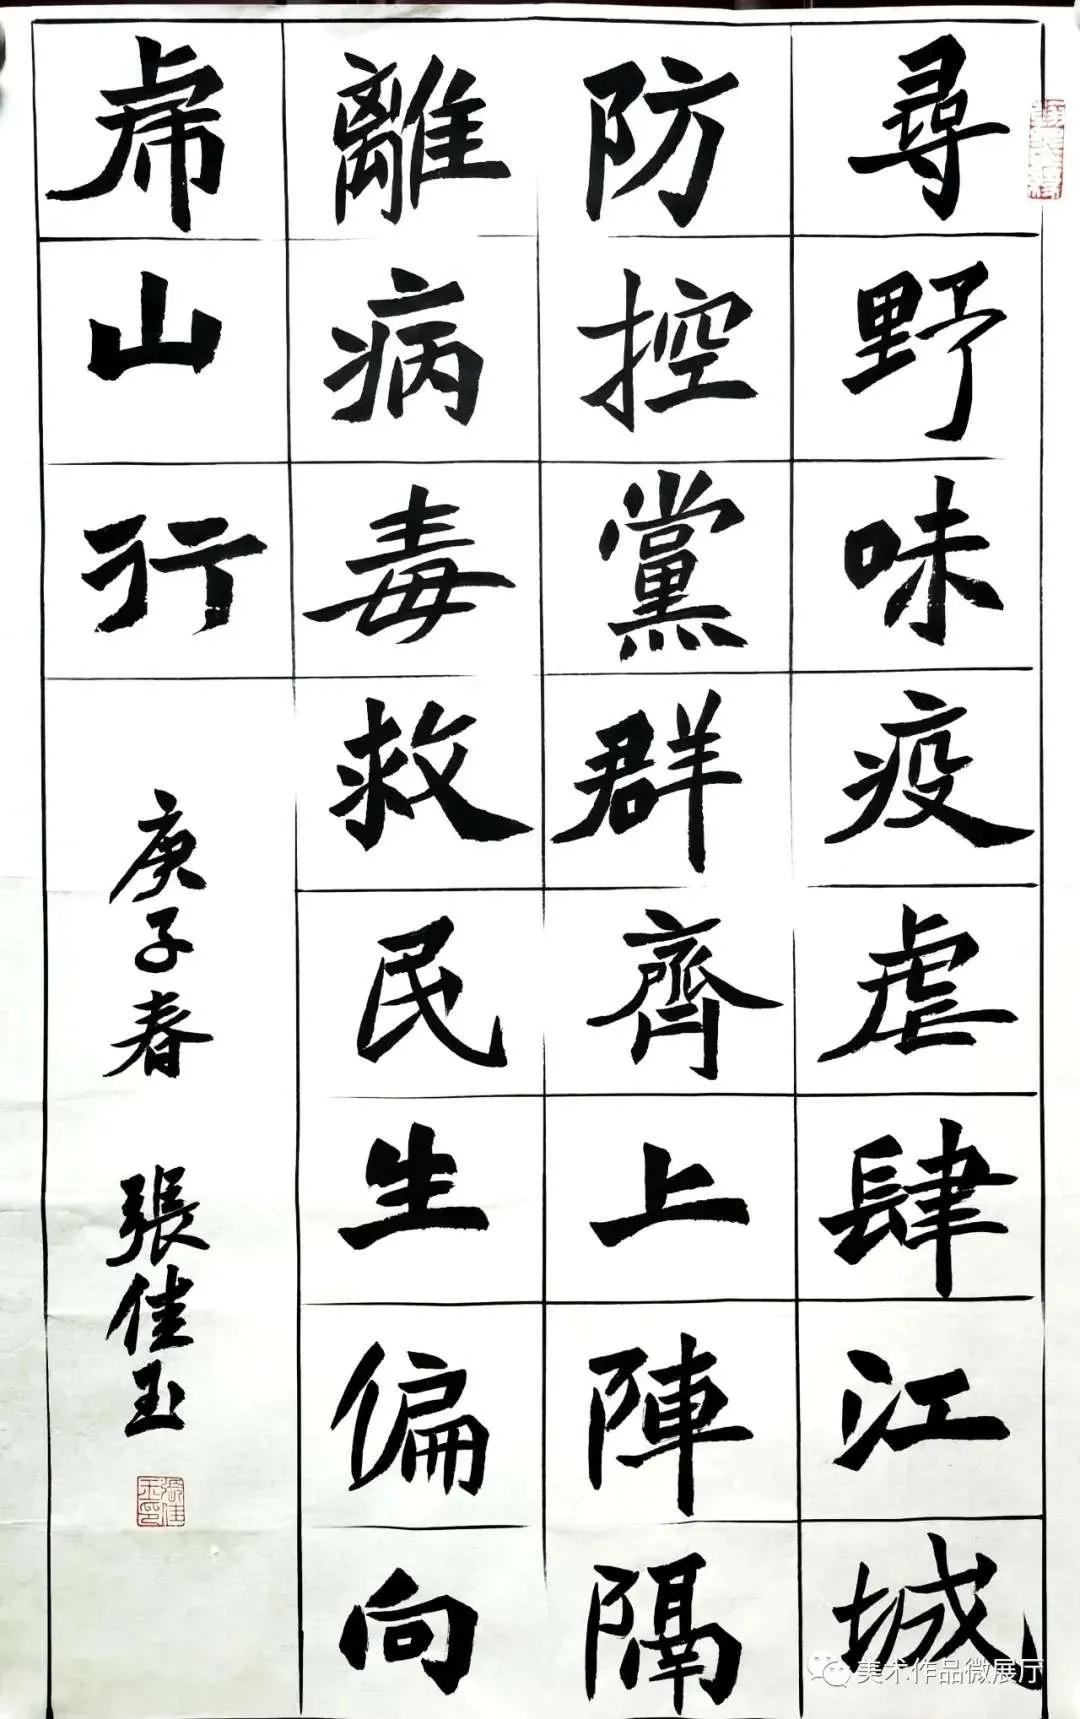 尋野味疫虐肆江城
防控黨群齊上陣隔
離病毒救民生偏向
虎山行
庚子春 張佳玉
美术作品微展厅